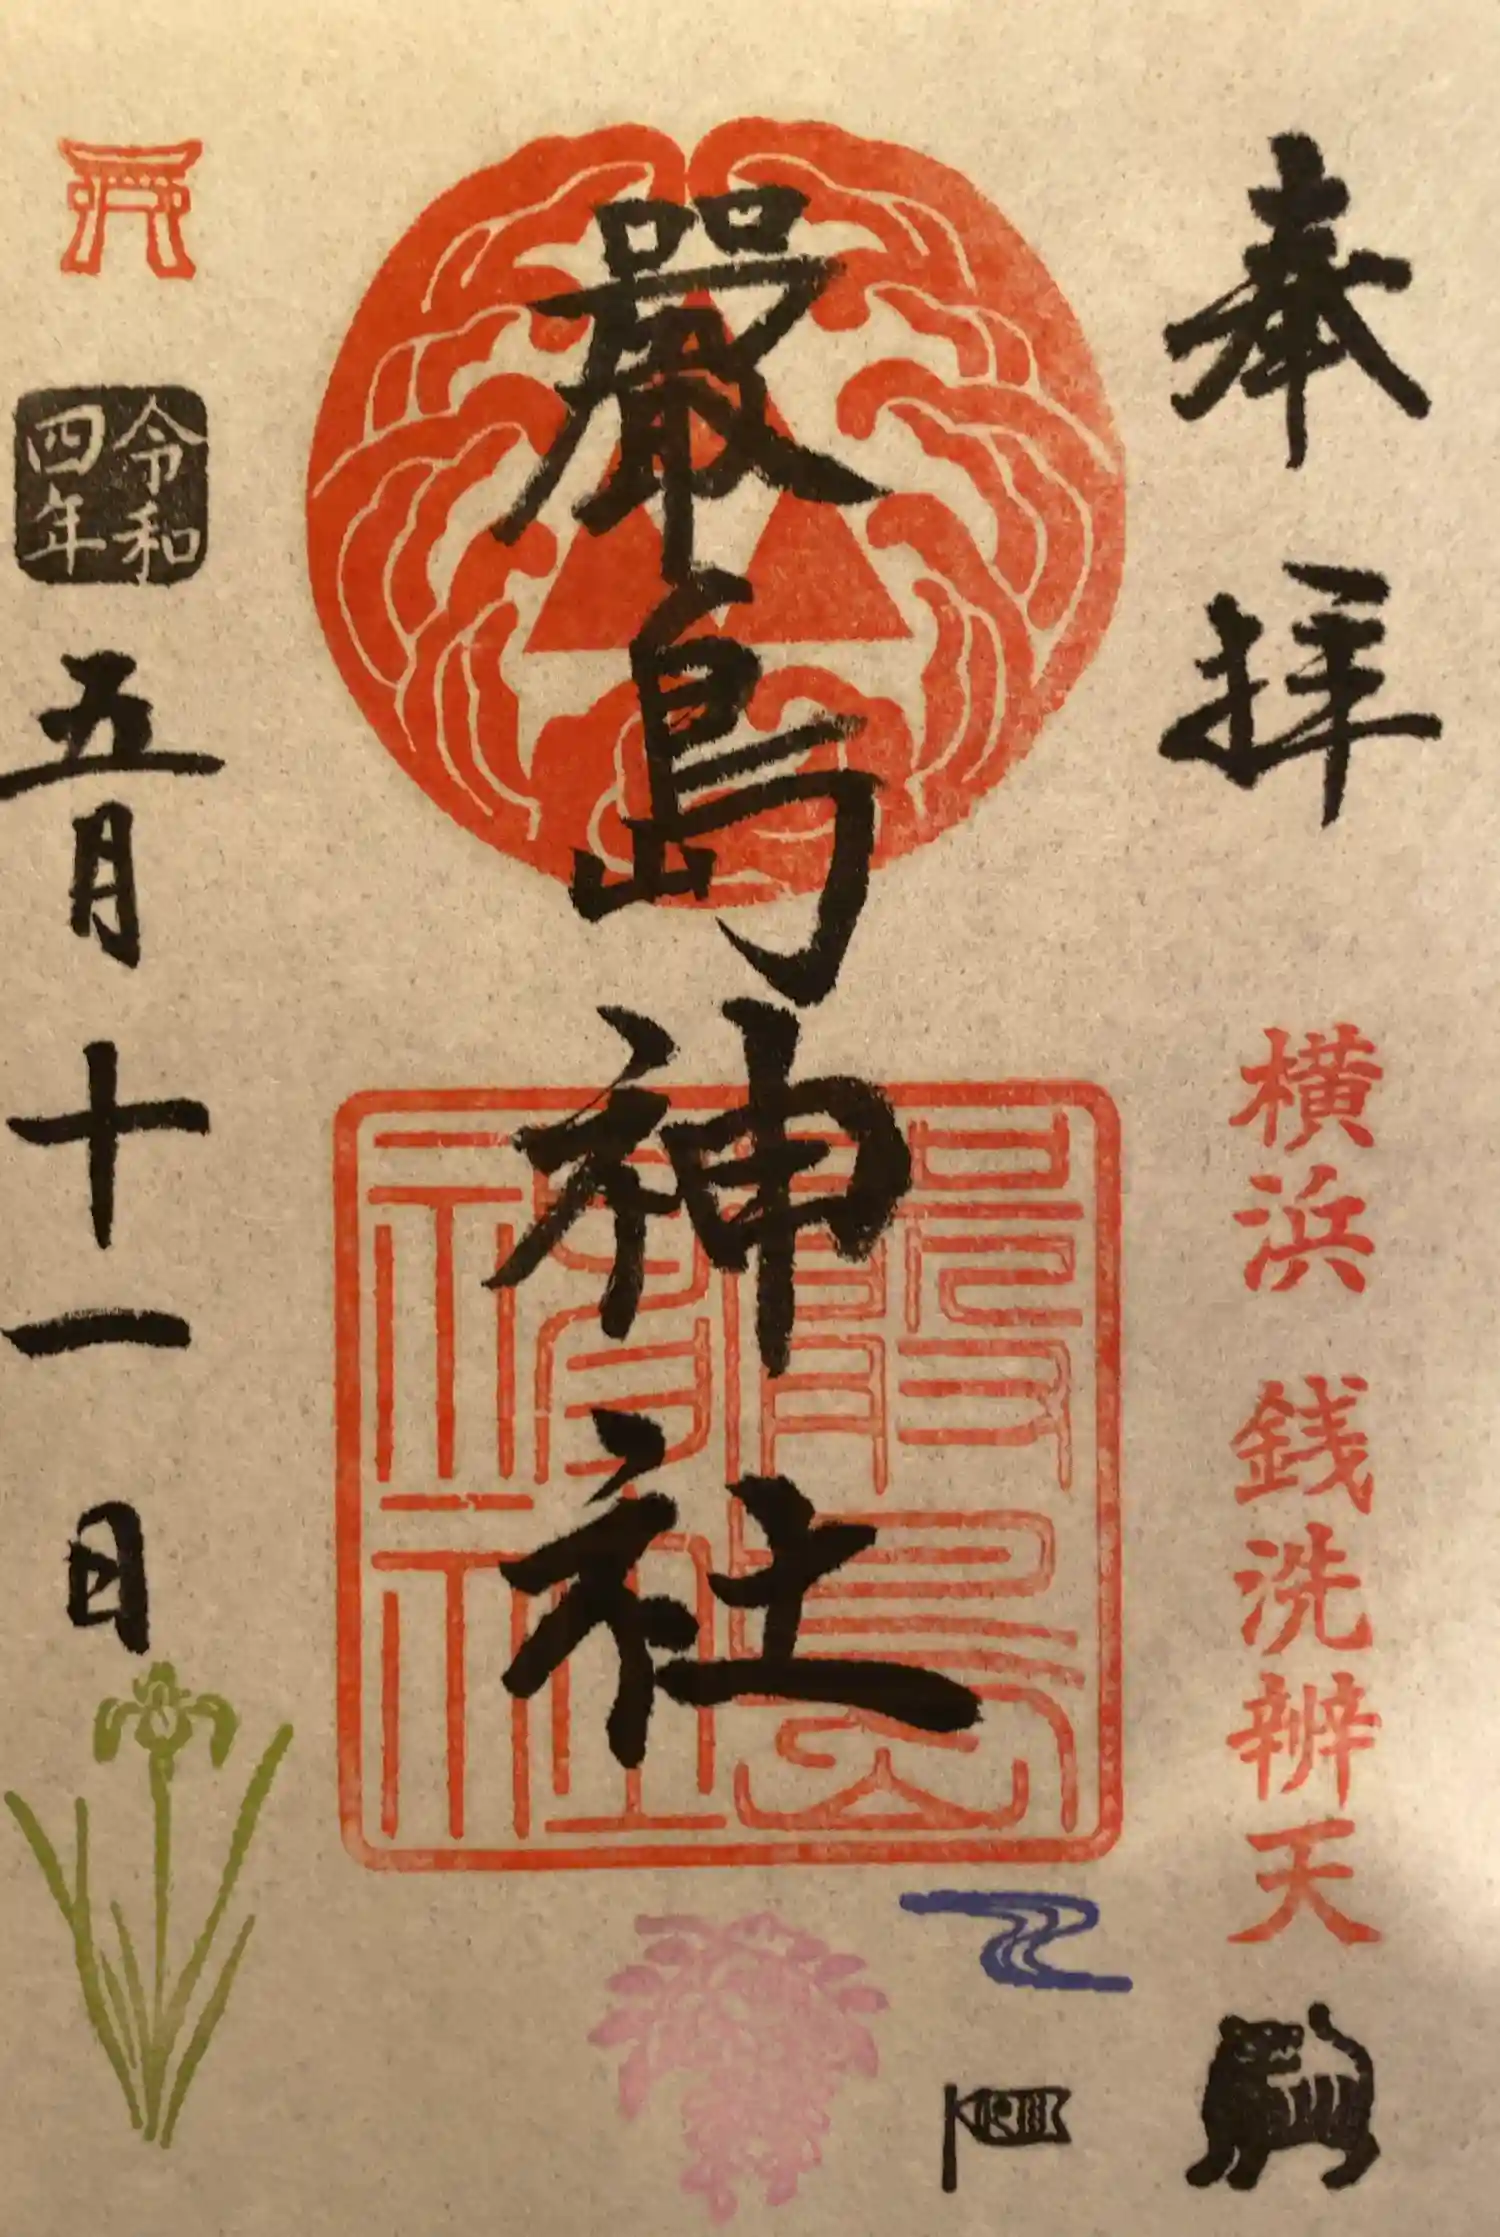 奉拝
横浜 銭洗辨天
嚴島神社
嚴島神社
令和
四年
五月十一日